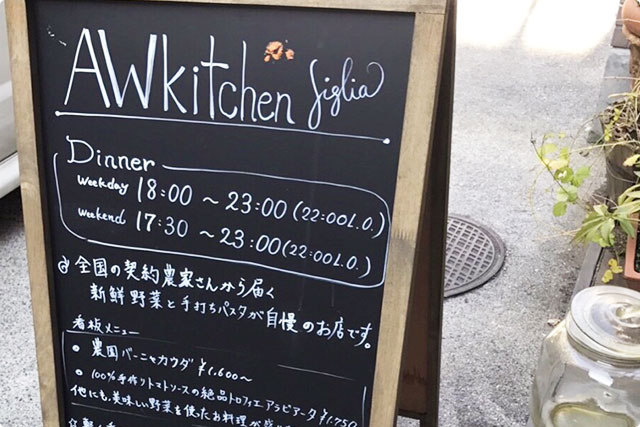 AWkitchen figlia
Dinner
Weekday 18:00 ~ 23:00 (22:00 L.O.)
Weekend 17:30 ~ 23:00 (22:00 L.O.)
全国の契約農家さんから届く
新鮮野菜と手打ちパスタが自慢のお店です。
看板メニュー
• 農園バーニャカウダ ¥1.600~
• 100%手作りトマトソースの絶品トロフィエ アラビアータ ¥1.750
他にも、美味しい野菜を使ったお料理が